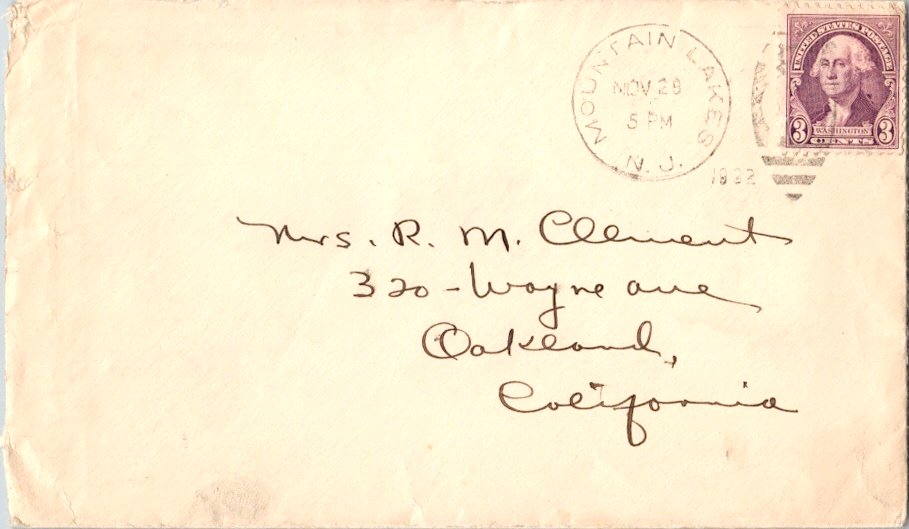 MOUNTAIN LAKES
NOV 29
5 PM
N. J.
1932
UNITED STATES POSTAGE
3 WASHINGTON 3
CENTS
Mrs. R. M. Clement
320 - Wayne ave
Oakland,
California